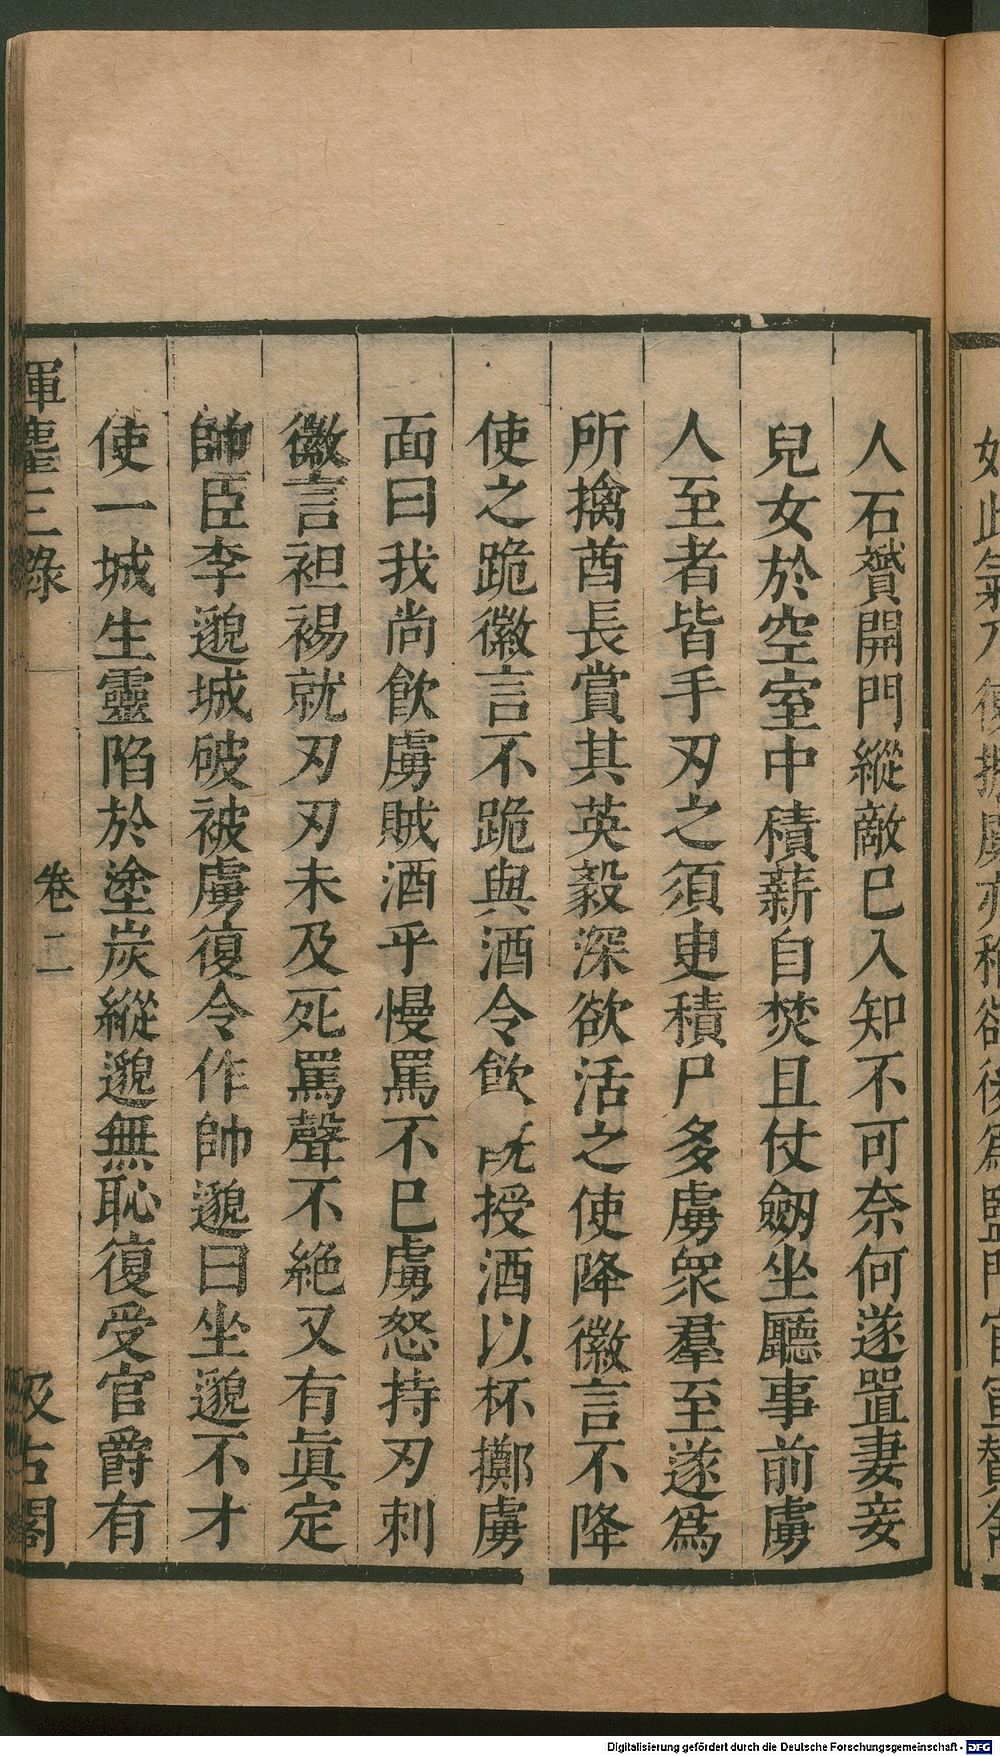 人石贇開門縱敵已入知不可奈何遂置妻妾
兒女於空室中積薪自焚且仗劒坐廳事前虜
人至者皆手刃之須臾積尸多虜衆羣至遂爲
所擒酋長賞其英毅深欲活之使降徽言不降
使之跪徽言不跪與酒令飲旣授酒以杯擲虜
面曰我尚飲虜賊酒乎慢罵不已虜怒持刃刺
徽言袒裼就刃刃未及死罵聲不絶又有眞定
帥臣李邈城破被虜復令作帥邈曰坐邈不才
使一城生靈陷於塗炭縱邈無恥復受官爵有
揮麈三錄 卷二 汲古閣
Digitalisierung gefördert durch die Deutsche Forschungsgemeinschaft - DFG